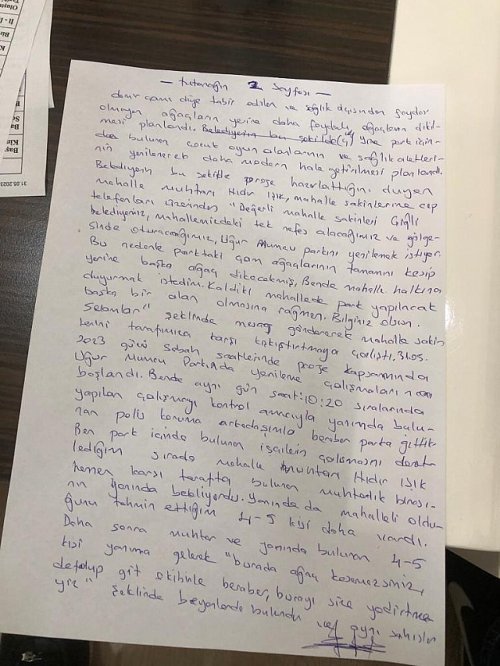 - tutanağın 2 sayfası -
dalır cam diye tabir edilen ve sağlık açısından faydalı
olmayan ağaçların yerine daha faydalı ağaçların dikil-
mesi planlandı. Yine park için-
de bulunan çocuk oyun alanlarının ve sağlık aletleri-
nin yenilenerek daha modern hale getirilmesi planlandı.
Belediyenin bu şekilde proje hazırlattığını duyan
mahalle muhtarı Hıdır Işık, mahalle sakinlerine cep
telefonları üzerinden "Değerli mahalle sakinleri Çiğli
belediyemiz, mahallemizdeki tek nefes alacağımız ve gölge-
sinde oturacağımız, Uğur Mumcu parkını yenilemek istiyor.
Bu nedenle parktaki çam ağaçlarının tamamını kesip
yerine başka ağaç dikecekmiş. Bende mahalle halkına
duyurmak istedim. Kaldıki mahallede park yapılacak
başka bir alan olmasına rağmen. Bilginiz olsun.
Selamlar" şeklinde mesaj göndererek mahalle sakin
lerini tarafımıza karşı kışkırtmaya çalıştı. 31.05.
2023 günü sabah saatlerinde proje kapsamında
Uğur Mumcu Parkında yenileme çalışmaları
başlandı. Bende aynı gün saat: 10:20 sıralarında
yapılan çalışmayı kontrol amacıyla yanımda bulu-
nan polis koruma arkadaşımla beraber parka gittik
Ben park içinde bulunan işçilerin çalışmasını denet
lediğim sırada mahalle muhtarı Hıdır IŞIK
hemen karşı tarafta bulunan muhtarlık binası-
nın yanında bekliyordu. Yanında da mahalleli oldu-
ğunu tahmin ettiğim 4-5 kişi daha vardı.
Daha sonra muhtar ve yanında bulunan 4-5
kişi yanıma gelerek "burada ağaç kesemezsiniz,
defolup git ekibinle beraber, burayı size yıktırtmay
yız" şeklinde beyanlarda bulundu ve aynı şahıslar
31.05.202